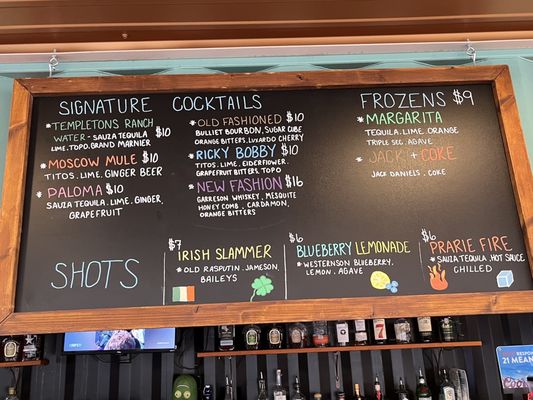 SIGNATURE COCKTAILS
TEMPLETONS RANCH
WATER - SAUZA TEQUILA $10
LIME, TOPO, GRAND MARNIER
MOSCOW MULE $10
TITOS, LIME, GINGER BEER
PALOMA $10
SAUZA TEQUILA, LIME, GINGER,
GRAPEFRUIT
OLD FASHIONED $10
BULLIET BOURBON, SUGAR CUBE
ORANGE BITTERS, LUXARDO CHERRY
RICKY BOBBY $10
TITOS, LIME, ElDERFLOWER,
GRAPEFRUIT BITTERS, TOPO
NEW FASHION $16
GARRESON WHISKEY, MESQUITE
HONEY COMB, CARDAMON,
ORANGE BITTERS
FROZENS $9
MARGARITA
TEQUILA, LIME, ORANGE
TRIPLE SEC, AGAVE
JACK + COKE
JACK DANIELS, COKE
SHOTS
$7
IRISH SLAMMER
OLD RASPUTIN, JAMESON
BAILEYS
$6
BLUEBERRY LEMONADE
WESTERNSON BLUEBERRY,
LEMON, AGAVE
$6
PRARIE FIRE
SAUZA TEQUILA, HOT SAUCE
CHILLED
21 MEAN